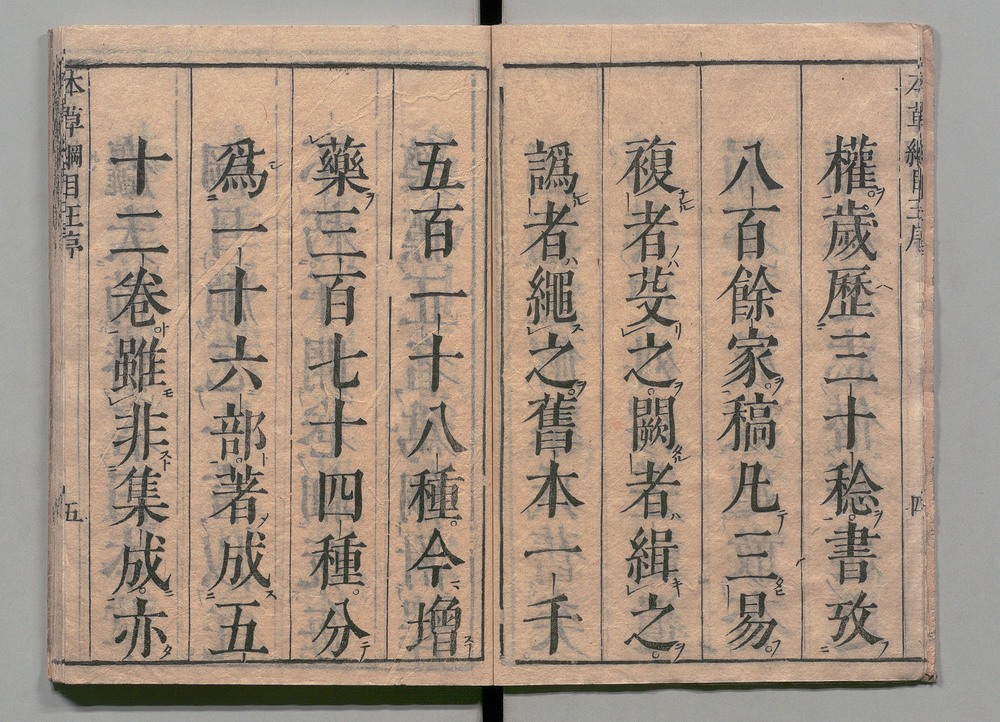 本草綱目王序
四
權歲歷三十稔書攷
八百餘家稿凡三易
複者芟之闕者緝之
譌者繩之舊本一千
五百一十八種今增
藥三百七十四種分
爲一十六部著成五
十二卷雖非集成亦
本草綱目王序
五